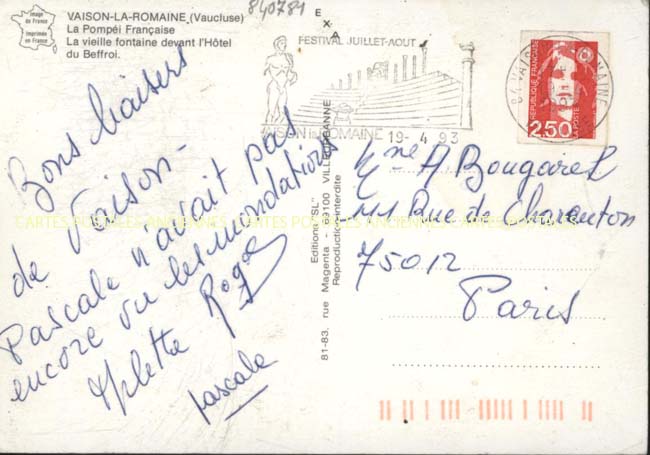 840781
Image
de France
Imprimée
en France
VAISON-LA-ROMAINE (Vaucluse)
La Pompéi Française
La vieille fontaine devant l'Hôtel
du Beffroi.
EXA
FESTIVAL JUILLET-AOUT
VAISON la ROMAINE 19-4 93
84 VAISON ROMAINE
REPUBLIQUE FRANÇAISE
2,50
LA POSTE
Bons baisers
de Vaison-
Pascale n'avait pas
encore vu les inondations
Roger
Pascale
Editions "SL"
81-83, rue Magenta - 69100 VILLEURBANNE
Reproduction interdite
Mme A Bougarel
Rue de Charenton
75012
Paris
CARTES POSTALES ANCIENNES CARTES POSTALES ANCIENNES CARTES POSTALES